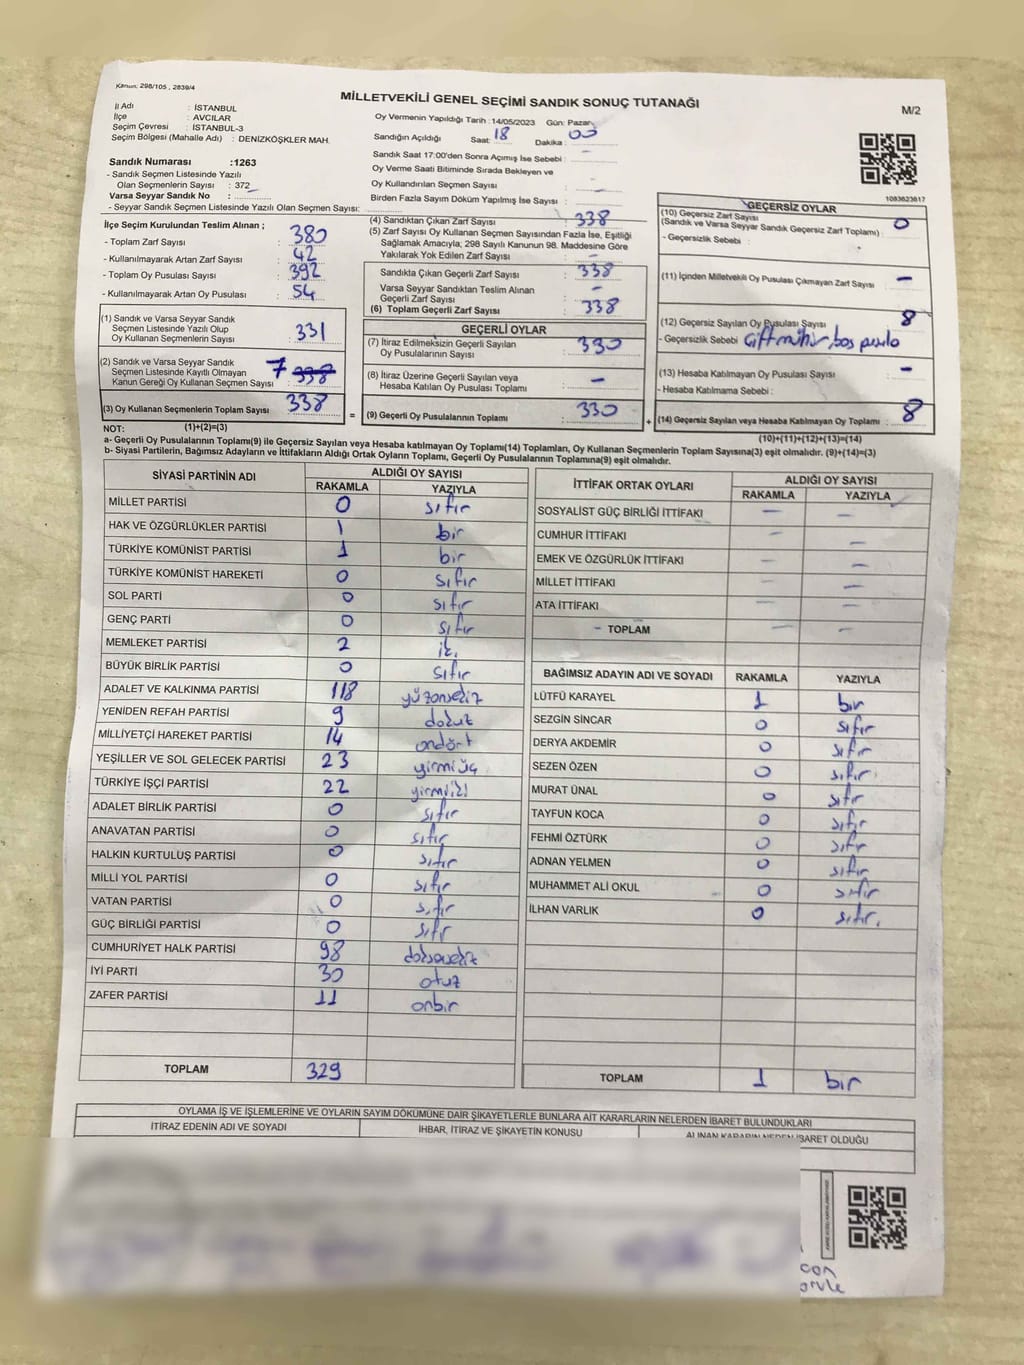 Kanun: 298/105 , 2839/4
MİLLETVEKİLİ GENEL SEÇİMİ SANDIK SONUÇ TUTANAĞI
M/2
İl Adı : İSTANBUL
İlçe : AVCILAR
Seçim Çevresi : İSTANBUL-3
Seçim Bölgesi (Mahalle Adı) : DENİZKÖŞKLER MAH.
Oy Vermenin Yapıldığı Tarih : 14/05/2023 Gün: Pazar
Sandığın Açıldığı Saat: 18 Dakika : 00
Sandık Saat 17:00'den Sonra Açımış İse Sebebi : -
Oy Verme Saati Bitiminde Sırada Bekleyen ve
Oy Kullandırılan Seçmen Sayısı : -
Birden Fazla Sayım Döküm Yapılmış İse Sayısı : -
Sandık Numarası :1263
- Sandık Seçmen Listesinde Yazılı
Olan Seçmenlerin Sayısı : 372
Varsa Seyyar Sandık No :
- Seyyar Sandık Seçmen Listesinde Yazılı Olan Seçmen Sayısı:
İlçe Seçim Kurulundan Teslim Alınan ;
- Toplam Zarf Sayısı : 380
- Kullanılmayarak Artan Zarf Sayısı : 42
- Toplam Oy Pusulası Sayısı : 392
- Kullanılmayarak Artan Oy Pusulası : 54
(1) Sandık ve Varsa Seyyar Sandık
Seçmen Listesinde Yazılı Olup
Oy Kullanan Seçmenlerin Sayısı : 331
(2) Sandık ve Varsa Seyyar Sandık
Seçmen Listesinde Kayıtlı Olmayan
Kanun Gereği Oy Kullanan Seçmen Sayısı : 7 338
(3) Oy Kullanan Seçmenlerin Toplam Sayısı : 338
(4) Sandıktan Çıkan Zarf Sayısı : 338
(5) Zarf Sayısı Oy Kullanan Seçmen Sayısından Fazla İse, Eşitliği
Sağlamak Amacıyla; 298 Sayılı Kanunun 98. Maddesine Göre
Yakılarak Yok Edilen Zarf Sayısı : -
Sandıkta Çıkan Geçerli Zarf Sayısı : 338
Varsa Seyyar Sandıktan Teslim Alınan
Geçerli Zarf Sayısı : -
(6) Toplam Geçerli Zarf Sayısı : 338
GEÇERLİ OYLAR
(7) İtiraz Edilmeksizin Geçerli Sayılan
Oy Pusulalarının Sayısı : 330
(8) İtiraz Üzerine Geçerli Sayılan veya
Hesaba Katılan Oy Pusulası Toplamı : -
= (9) Geçerli Oy Pusulalarının Toplamı : 330
1083623817
GEÇERSİZ OYLAR
(10) Geçersiz Zarf Sayısı
(Sandık ve Varsa Seyyar Sandık Geçersiz Zarf Toplamı) : 0
- Geçersizlik Sebebi :
(11) İçinden Milletvekili Oy Pusulası Çıkmayan Zarf Sayısı : -
(12) Geçersiz Sayılan Oy Pusulası Sayısı : 8
- Geçersizlik Sebebi : Çift mühür, boş pusula
(13) Hesaba Katılmayan Oy Pusulası Sayısı : -
- Hesaba Katılmama Sebebi :
+ (14) Geçersiz Sayılan veya Hesaba Katılmayan Oy Toplamı : 8
NOT: (1)+(2)=(3)
(10)+(11)+(12)+(13)=(14)
a- Geçerli Oy Pusulalarının Toplamı(9) ile Geçersiz Sayılan veya Hesaba katılmayan Oy Toplamı(14) Toplamları, Oy Kullanan Seçmenlerin Toplam Sayısına(3) eşit olmalıdır. (9)+(14)=(3)
b- Siyasi Partilerin, Bağımsız Adayların ve İttifakların Aldığı Ortak Oyların Toplamı, Geçerli Oy Pusulalarının Toplamına(9) eşit olmalıdır.
SİYASİ PARTİNİN ADI ALDIĞI OY SAYISI
RAKAMLA YAZIYLA
MİLLET PARTİSİ 0 sıfır
HAK VE ÖZGÜRLÜKLER PARTİSİ 1 bir
TÜRKİYE KOMÜNİST PARTİSİ 1 bir
TÜRKİYE KOMÜNİST HAREKETİ 0 sıfır
SOL PARTİ 0 sıfır
GENÇ PARTİ 0 sıfır
MEMLEKET PARTİSİ 2 iki
BÜYÜK BİRLİK PARTİSİ 0 sıfır
ADALET VE KALKINMA PARTİSİ 118 yüzonsekiz
YENİDEN REFAH PARTİSİ 9 dokuz
MİLLİYETÇİ HAREKET PARTİSİ 14 ondört
YEŞİLLER VE SOL GELECEK PARTİSİ 23 yirmiüç
TÜRKİYE İŞÇİ PARTİSİ 22 yirmiiki
ADALET BİRLİK PARTİSİ 0 sıfır
ANAVATAN PARTİSİ 0 sıfır
HALKIN KURTULUŞ PARTİSİ 0 sıfır
MİLLİ YOL PARTİSİ 0 sıfır
VATAN PARTİSİ 0 sıfır
GÜÇ BİRLİĞİ PARTİSİ 0 sıfır
CUMHURİYET HALK PARTİSİ 98 doksansekiz
İYİ PARTİ 30 otuz
ZAFER PARTİSİ 11 onbir
TOPLAM 329
İTTİFAK ORTAK OYLARI ALDIĞI OY SAYISI
RAKAMLA YAZIYLA
SOSYALİST GÜÇ BİRLİĞİ İTTİFAKI - -
CUMHUR İTTİFAKI - -
EMEK VE ÖZGÜRLÜK İTTİFAKI - -
MİLLET İTTİFAKI - -
ATA İTTİFAKI - -
- TOPLAM - -
BAĞIMSIZ ADAYIN ADI VE SOYADI RAKAMLA YAZIYLA
LÜTFÜ KARAYEL 1 bir
SEZGİN SİNCAR 0 sıfır
DERYA AKDEMİR 0 sıfır
SEZEN ÖZEN 0 sıfır
MURAT ÜNAL 0 sıfır
TAYFUN KOCA 0 sıfır
FEHMİ ÖZTÜRK 0 sıfır
ADNAN YELMEN 0 sıfır
MUHAMMET ALİ OKUL 0 sıfır
İLHAN VARLIK 0 sıfır
TOPLAM 1 bir
OYLAMA İŞ VE İŞLEMLERİNE VE OYLARIN SAYIM DÖKÜMÜNE DAİR ŞİKAYETLERLE BUNLARA AİT KARARLARIN NELERDEN İBARET BULUNDUKLARI
İTİRAZ EDENİN ADI VE SOYADI İHBAR, İTİRAZ VE ŞİKAYETİN KONUSU ALINAN KARARIN NEDEN İBARET OLDUĞU